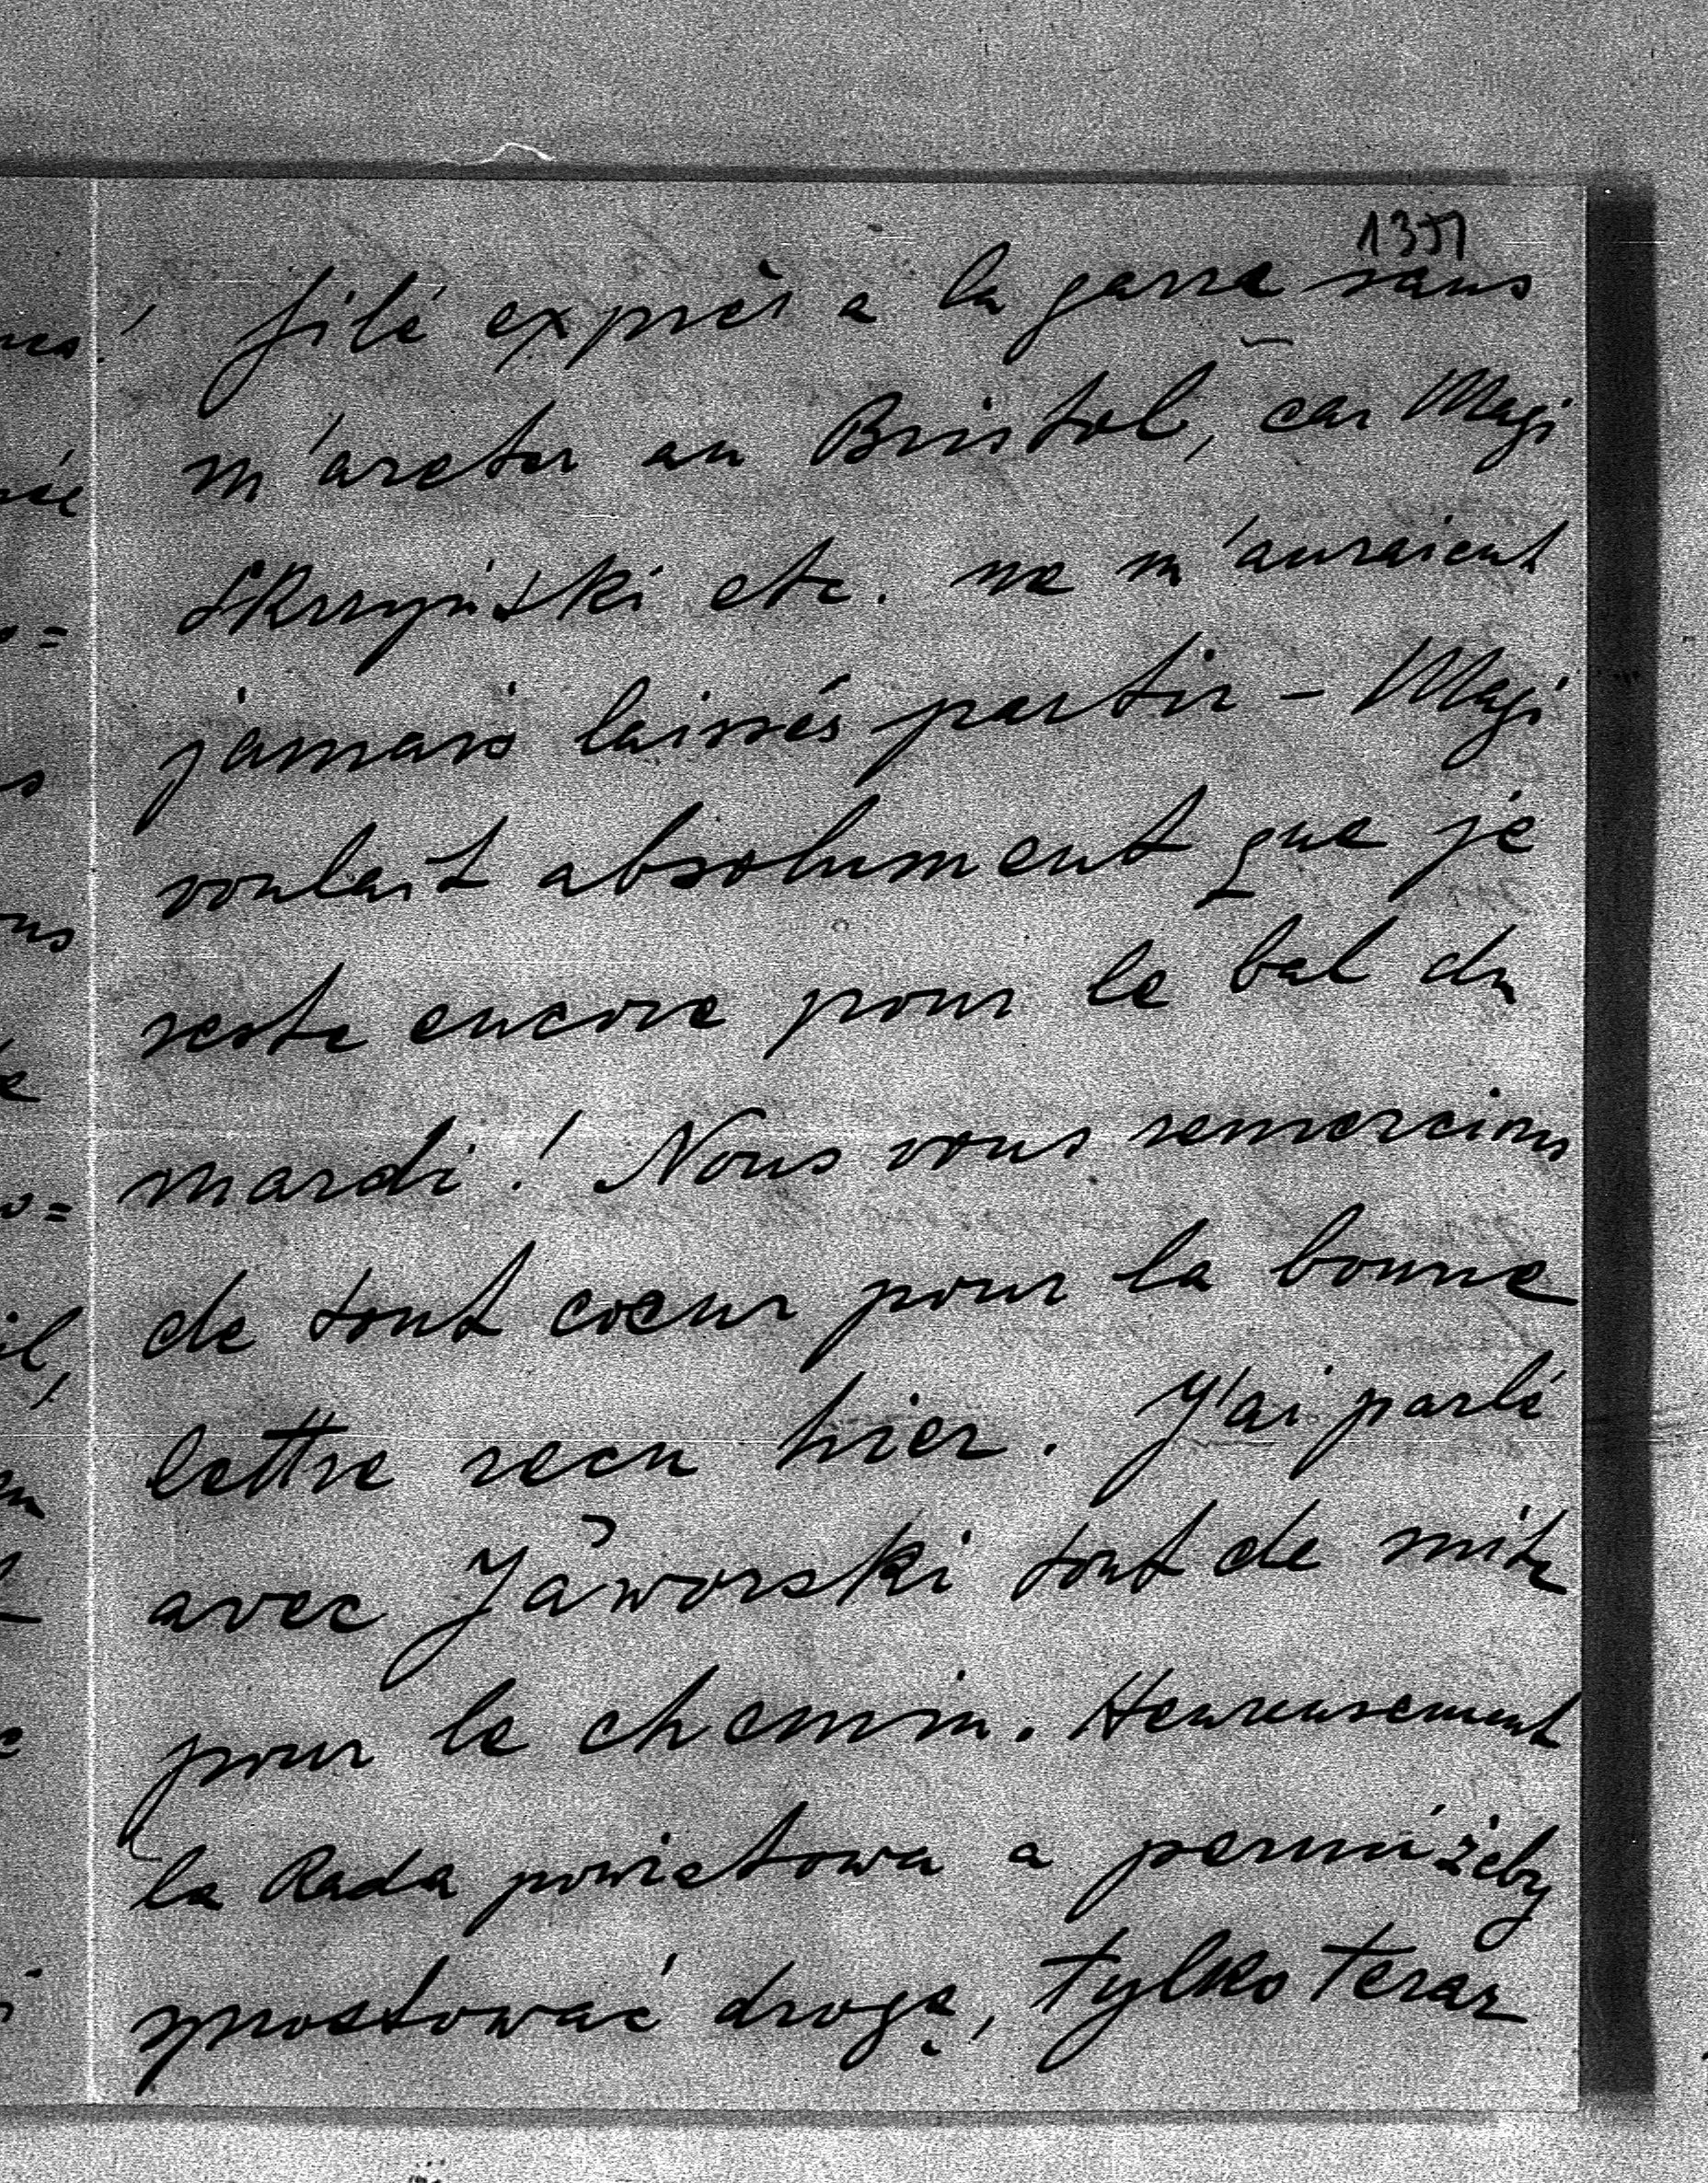 1351
filé exprès a la garre sans
m'areter au Bristol, car Magi
Skrzyński etc. ne m'auraient
jamais laissés partir – Magi
voulait absolument que je
reste encore pour le bal du
mardi! Nous vous remercions
de tout coeur pour la bonne
lettre recu hier. J'ai parlé
avec Jaworski tout de suite
pour le chemin. Heureusement
la Rada powiatowa a permi żeby
sprostować drogę, tylko teraz